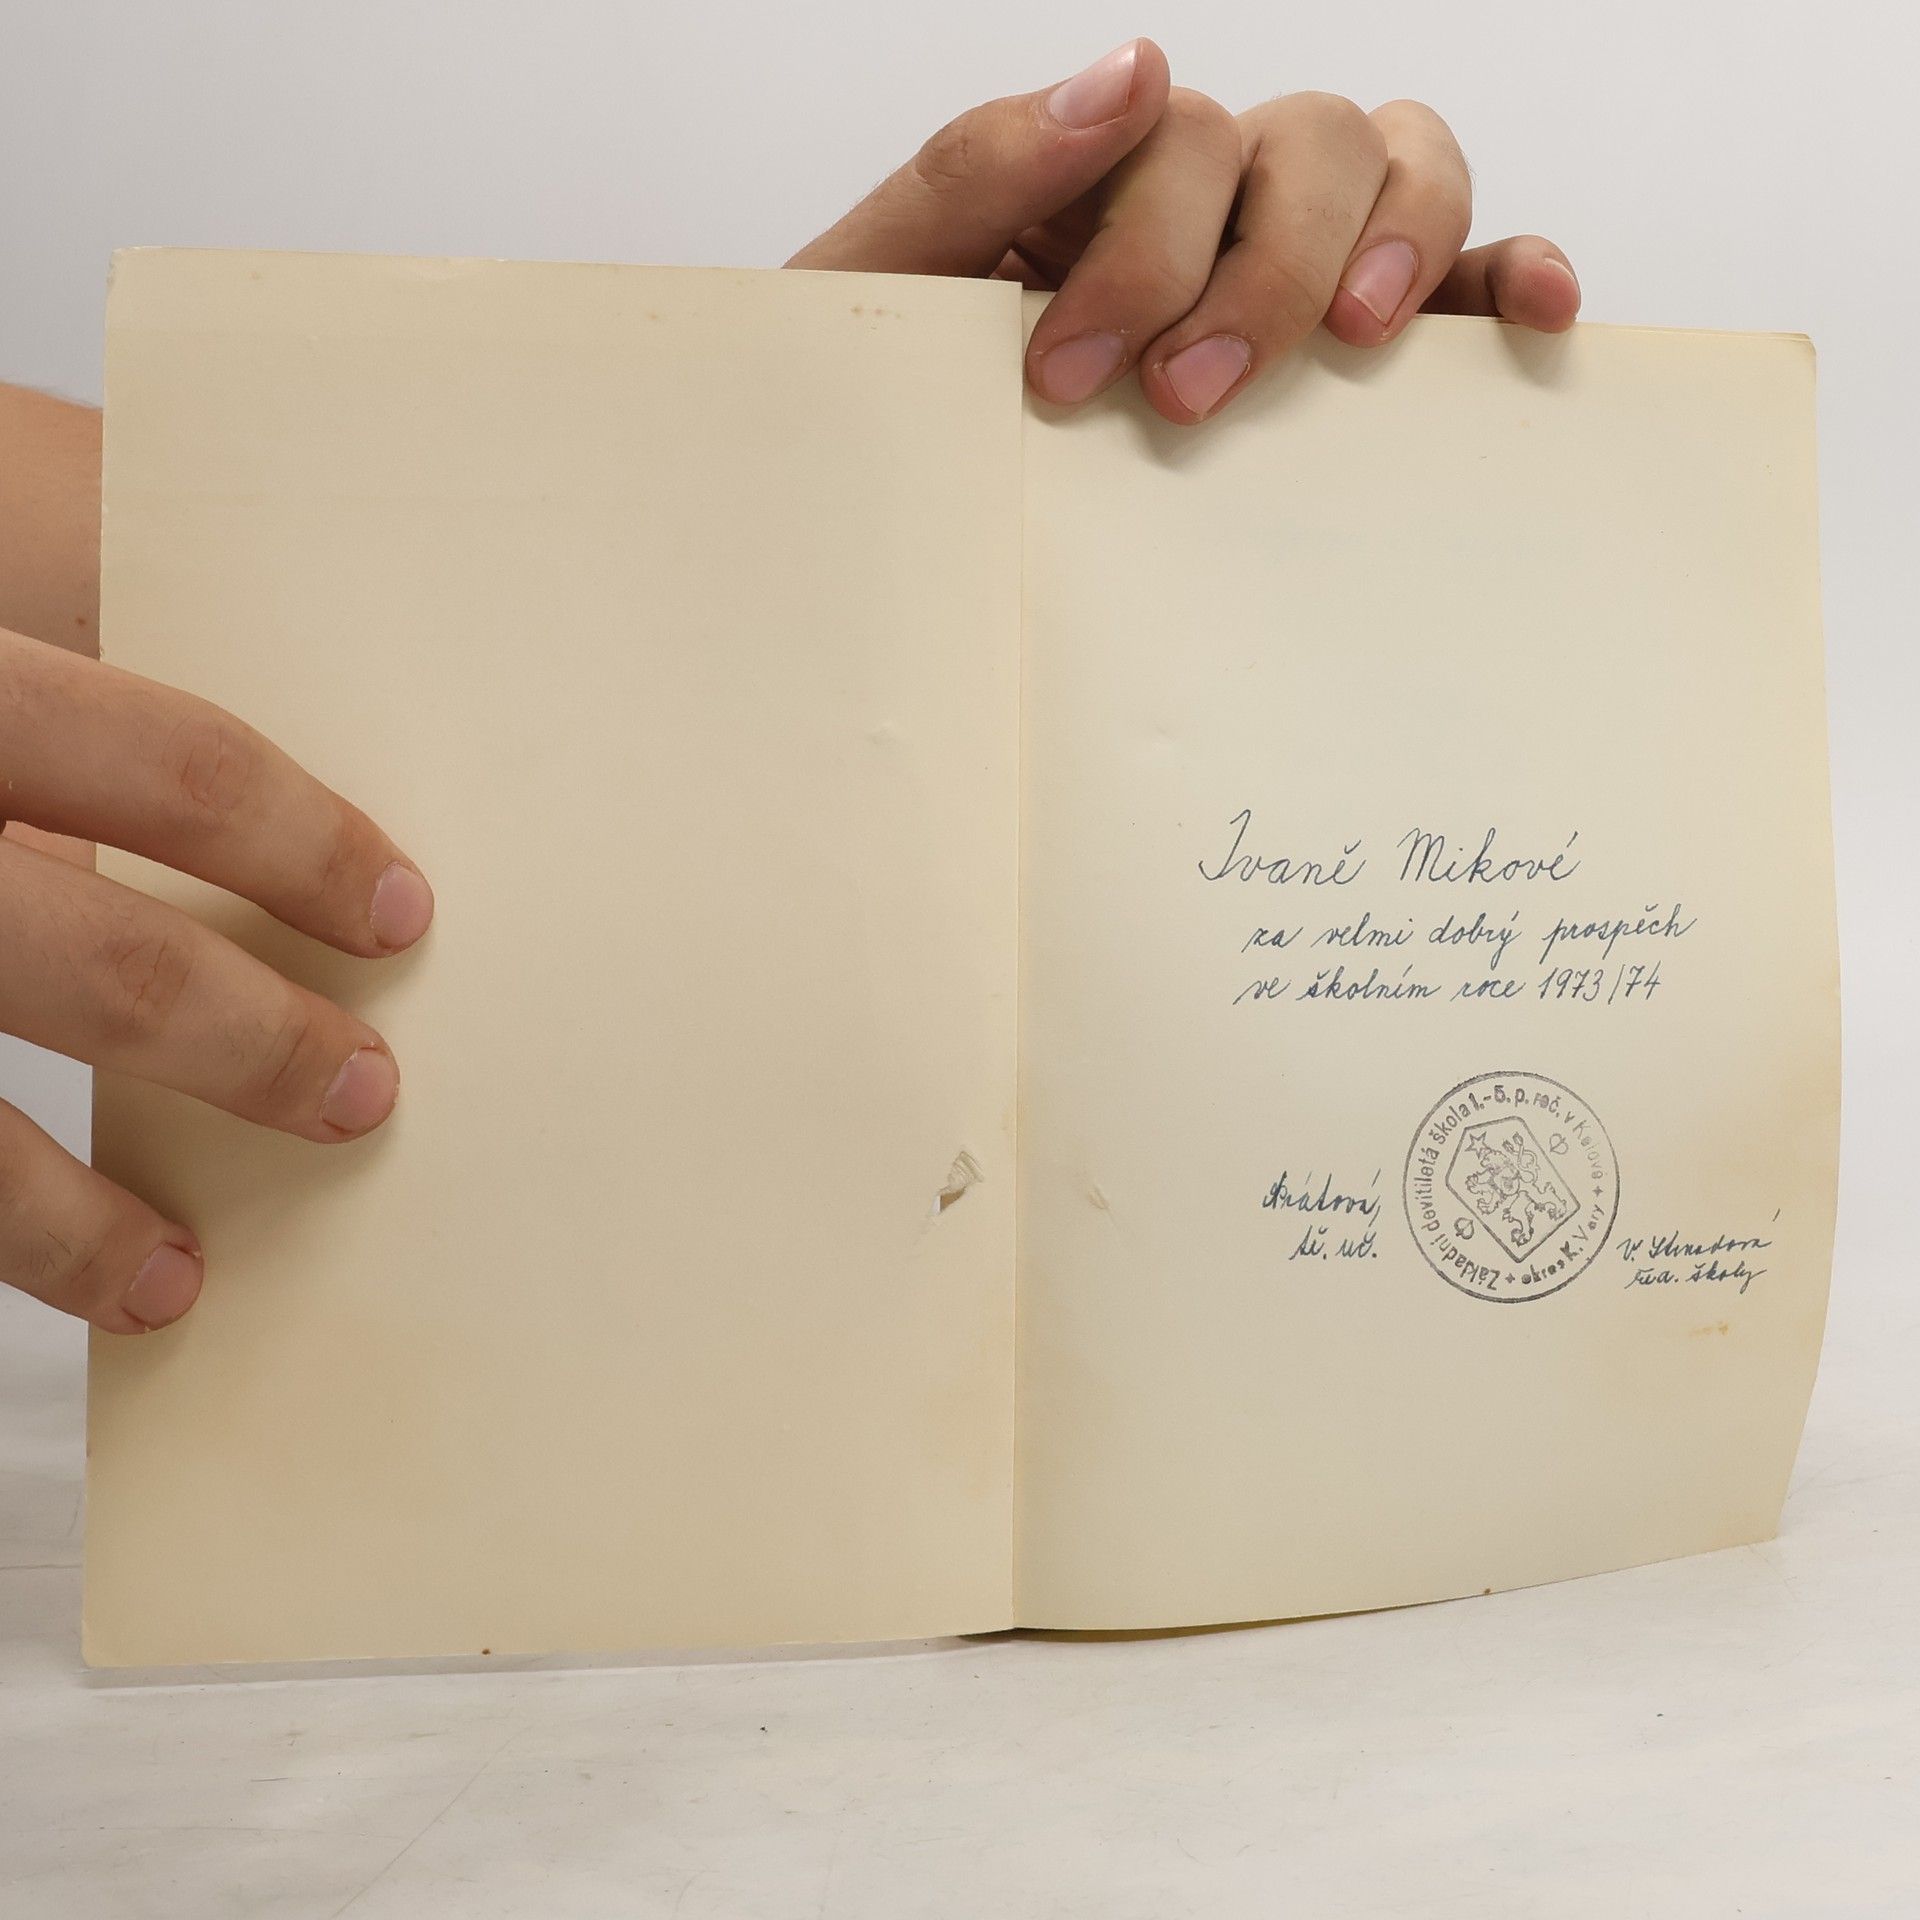 Ivaně Mikové
za velmi dobrý prospěch
ve školním roce 1973/74
Základní devítiletá škola 1.-5.p.roč. v Kolové + okres K. Vary +
tř. uč.
V. Strnadová
řed. školy